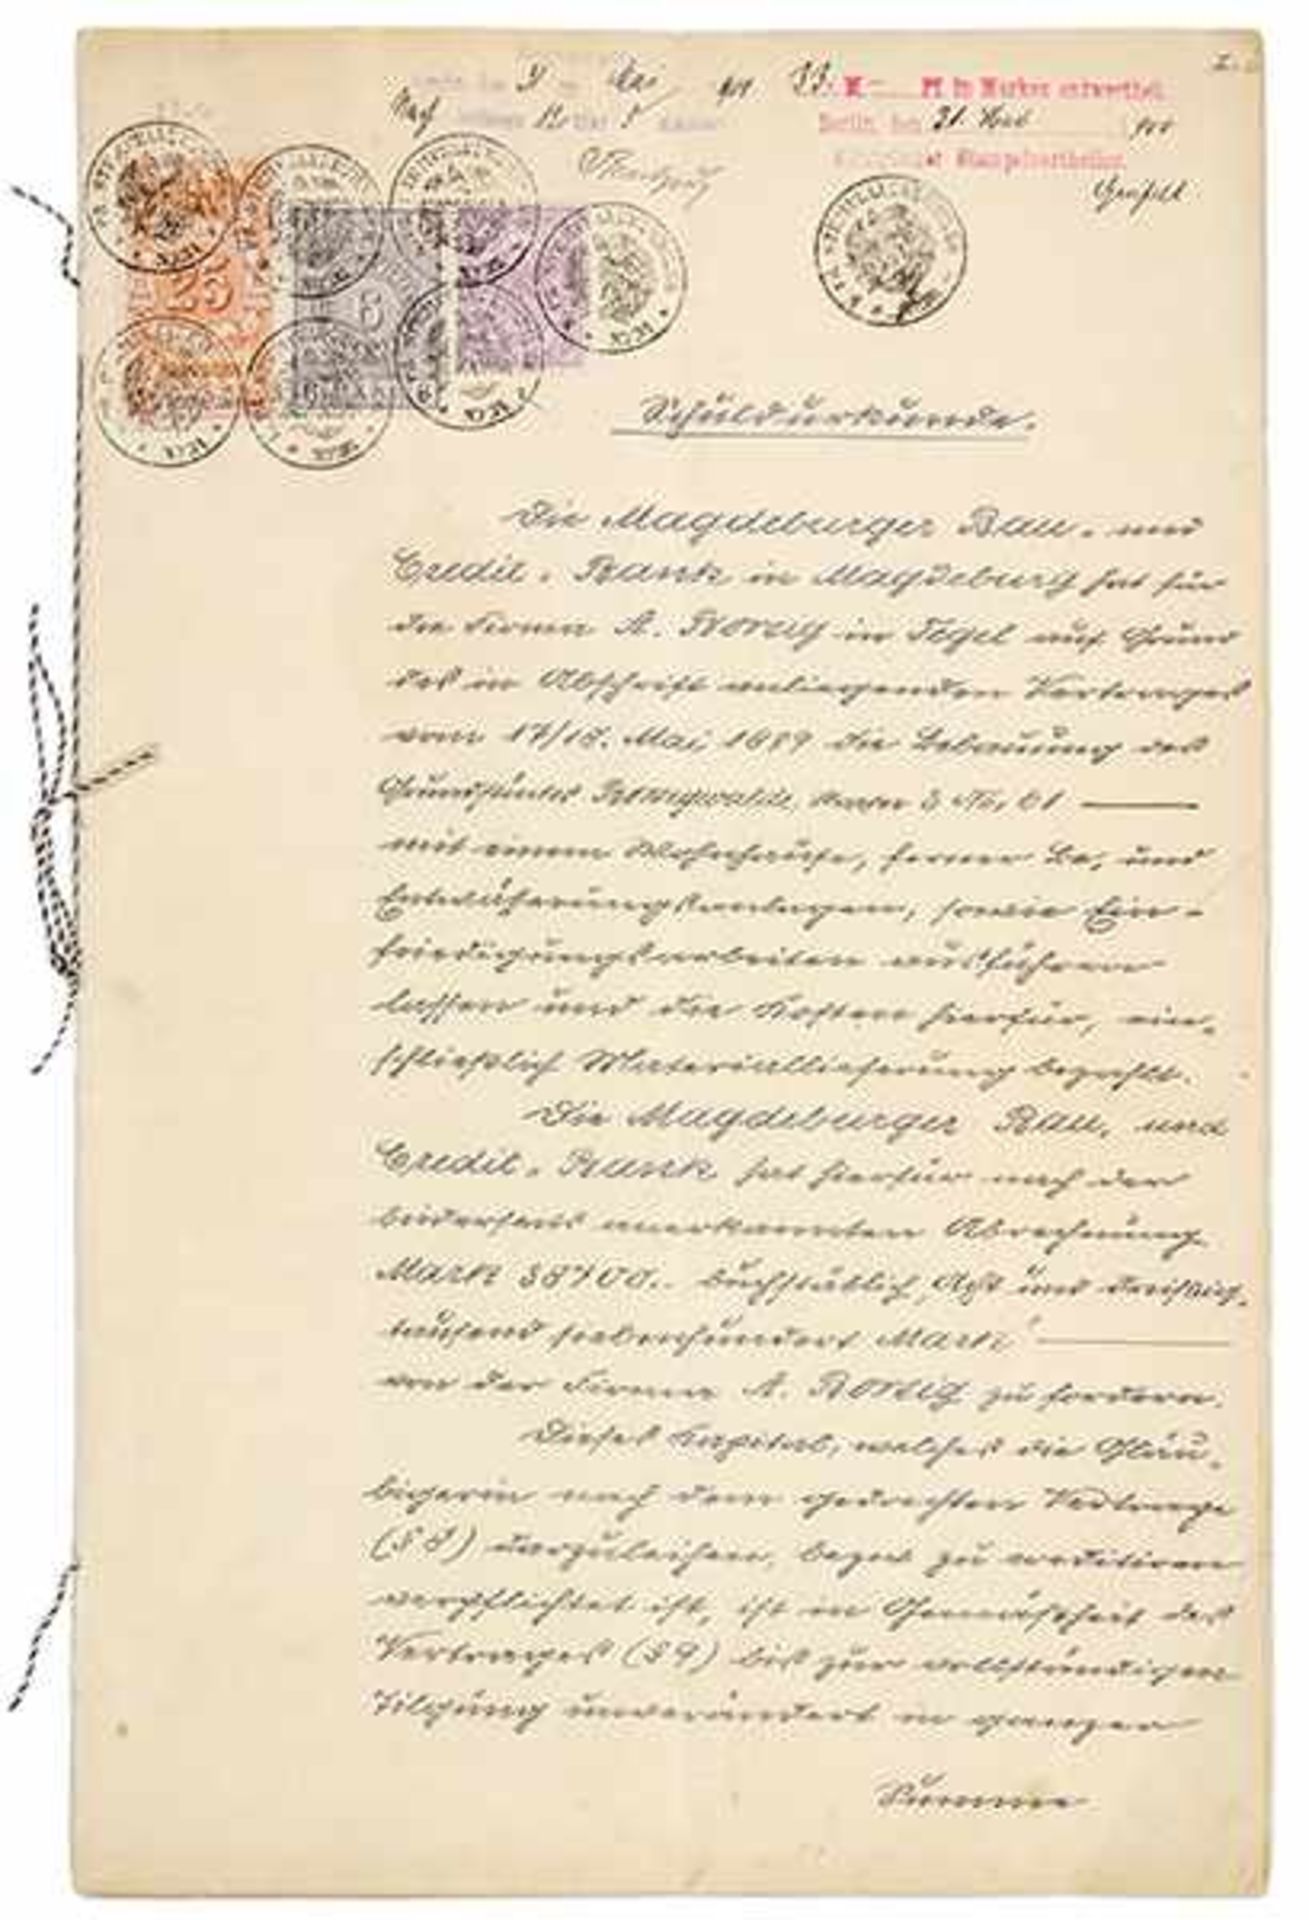 I.
31. Mai 33. M Pf in Marken entwerthet.
Nach Berlin, den 31. Mai
Königlicher Stempelvertheiler.
25
6
Schuldurkunde.
Die Magdeburger Bau- und
Credit-Bank in Magdeburg hat für
die Firma A. Borsig in Tegel auf Grund
des in Abschrift anliegenden Vertrages
vom 17/18. Mai 1899 die Bebauung des
Grundstückes Borsigwalde, No. 61
mit einem Wohnhause, ferner Be- und
Entwässerungsanlagen, sowie Ein-
friedigungsarbeiten ausführen
lassen und die Kosten hierfür, ein-
schließlich Materiallieferung bezahlt.
Die Magdeburger Bau- und
Credit-Bank hat hierfür nach der
beiderseits anerkannten Abrechnung
Mark 38700.- buchstäblich "Acht und dreißig-
tausend siebenhundert Mark"
von der Firma A. Borsig zu fordern.
Dieses Kapital, welches die Gläu-
bigerin nach dem gedachten Vertrage
(§ 8) darzuleihen, bezw. zu creditiren
verpflichtet ist, ist in Gemäßheit des
Vertrages (§ 9) bis zur vollständigen
Tilgung unverändert in ganzer
Summe